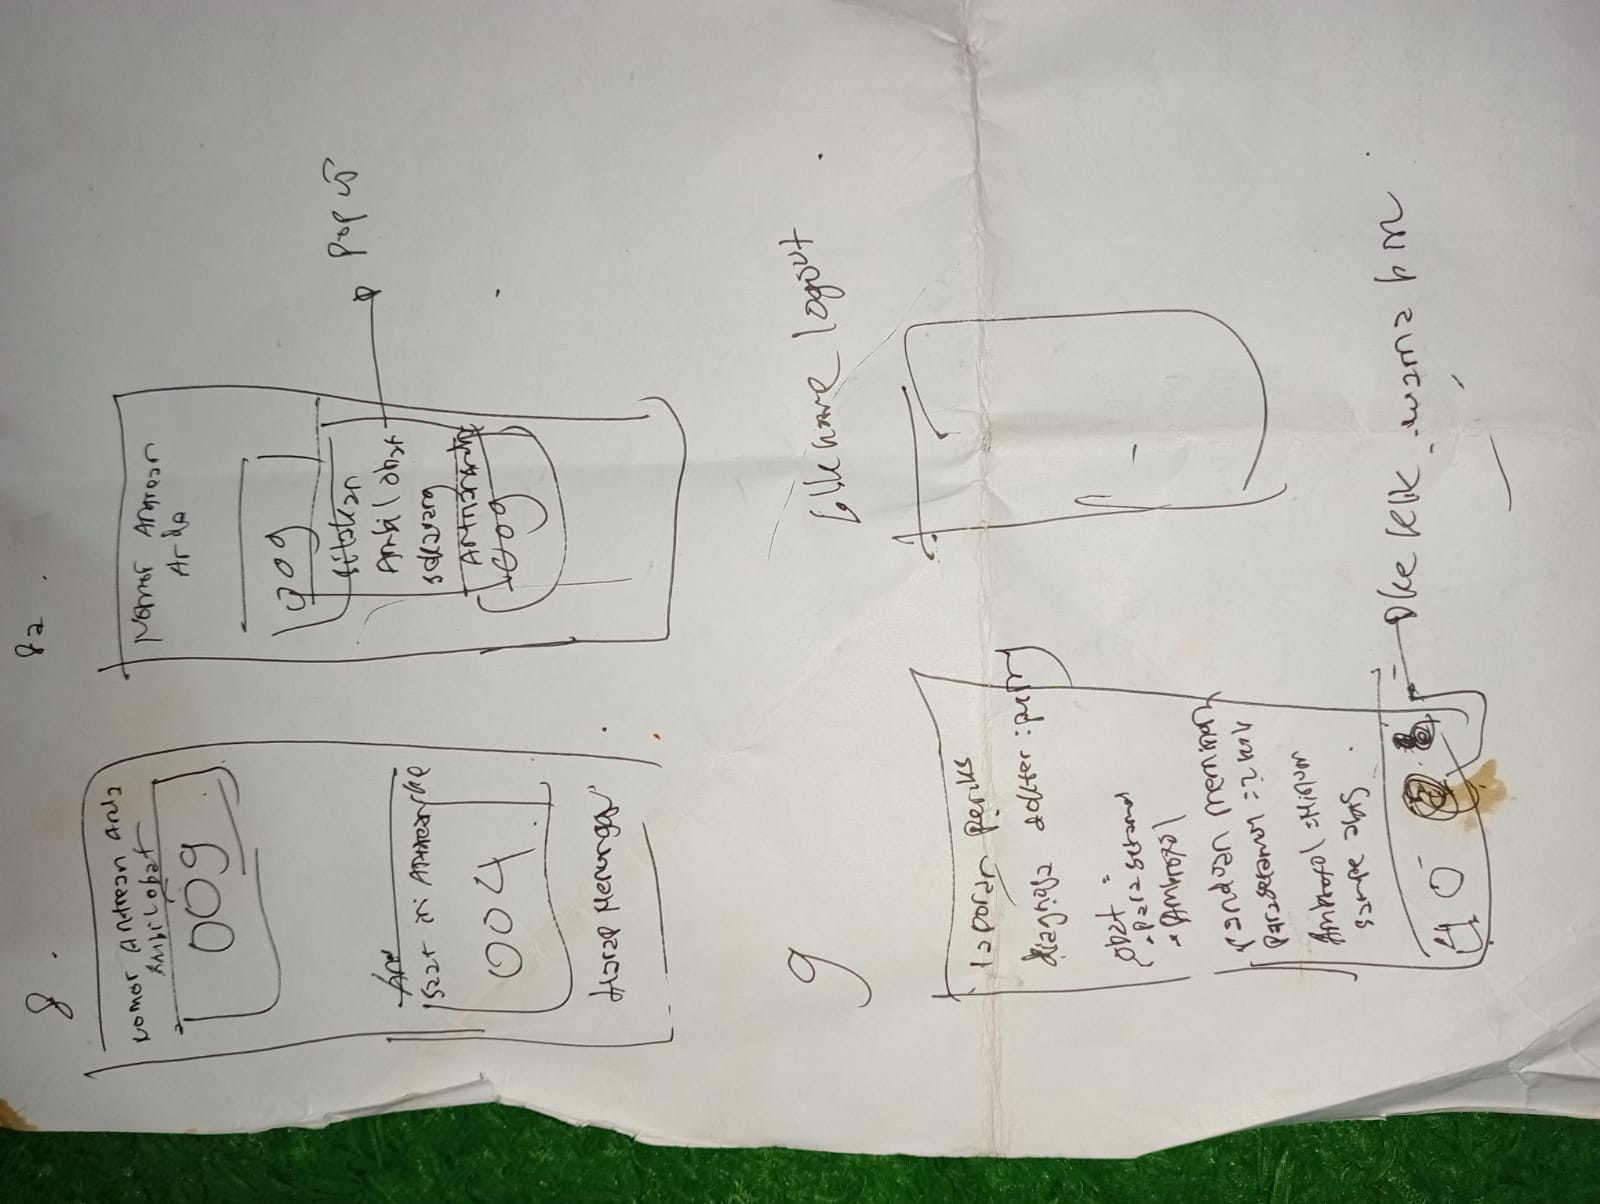 8.
Nomor Antrean Anda
Ambil obat
009
saat ini Antrean ke
004
Harap Menunggu
8a.
Nomor Antrean
Anda
009
silakan
Ambil obat
sekarang
009
Pop up
9
laporan periks
diagnosa dokter :
obat :
• Parasetamol
• Ambroxol
panduan meminum
Parasetamol =
Ambroxol = Minum
sampe abis
klik home logout
ke klik warna